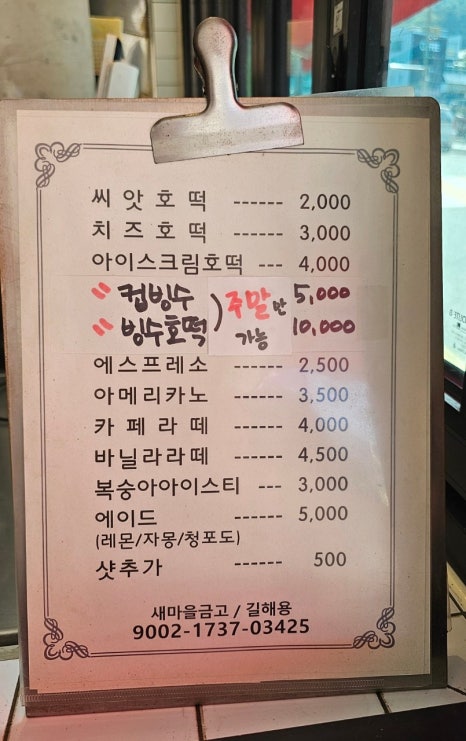 씨앗호떡 ------ 2,000
치즈호떡 ------ 3,000
아이스크림호떡 --- 4,000
〃 컵빙수 ) 주말만 5,000
〃 빙수호떡 가능 10,000
에스프레소 ------ 2,500
아메리카노 ------ 3,500
카페라떼 ------ 4,000
바닐라라떼 ------ 4,500
복숭아아이스티 --- 3,000
에이드 ------ 5,000
(레몬/자몽/청포도)
샷추가 ------ 500
새마을금고 / 길해용
9002-1737-03425